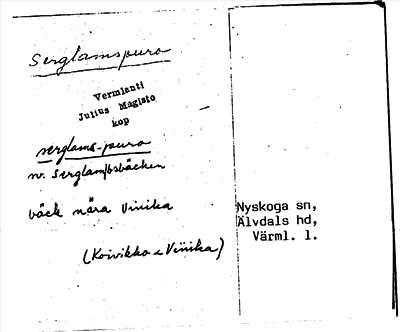 Serglamspuro
Vermlanti
Julius Mägiste
kop
serglams-puro
rv. Serglambsbäcken
bäck nära Vinika
(Koivikko < Vinika)
Nyskoga sn,
Älvdals hd,
Värml. l.